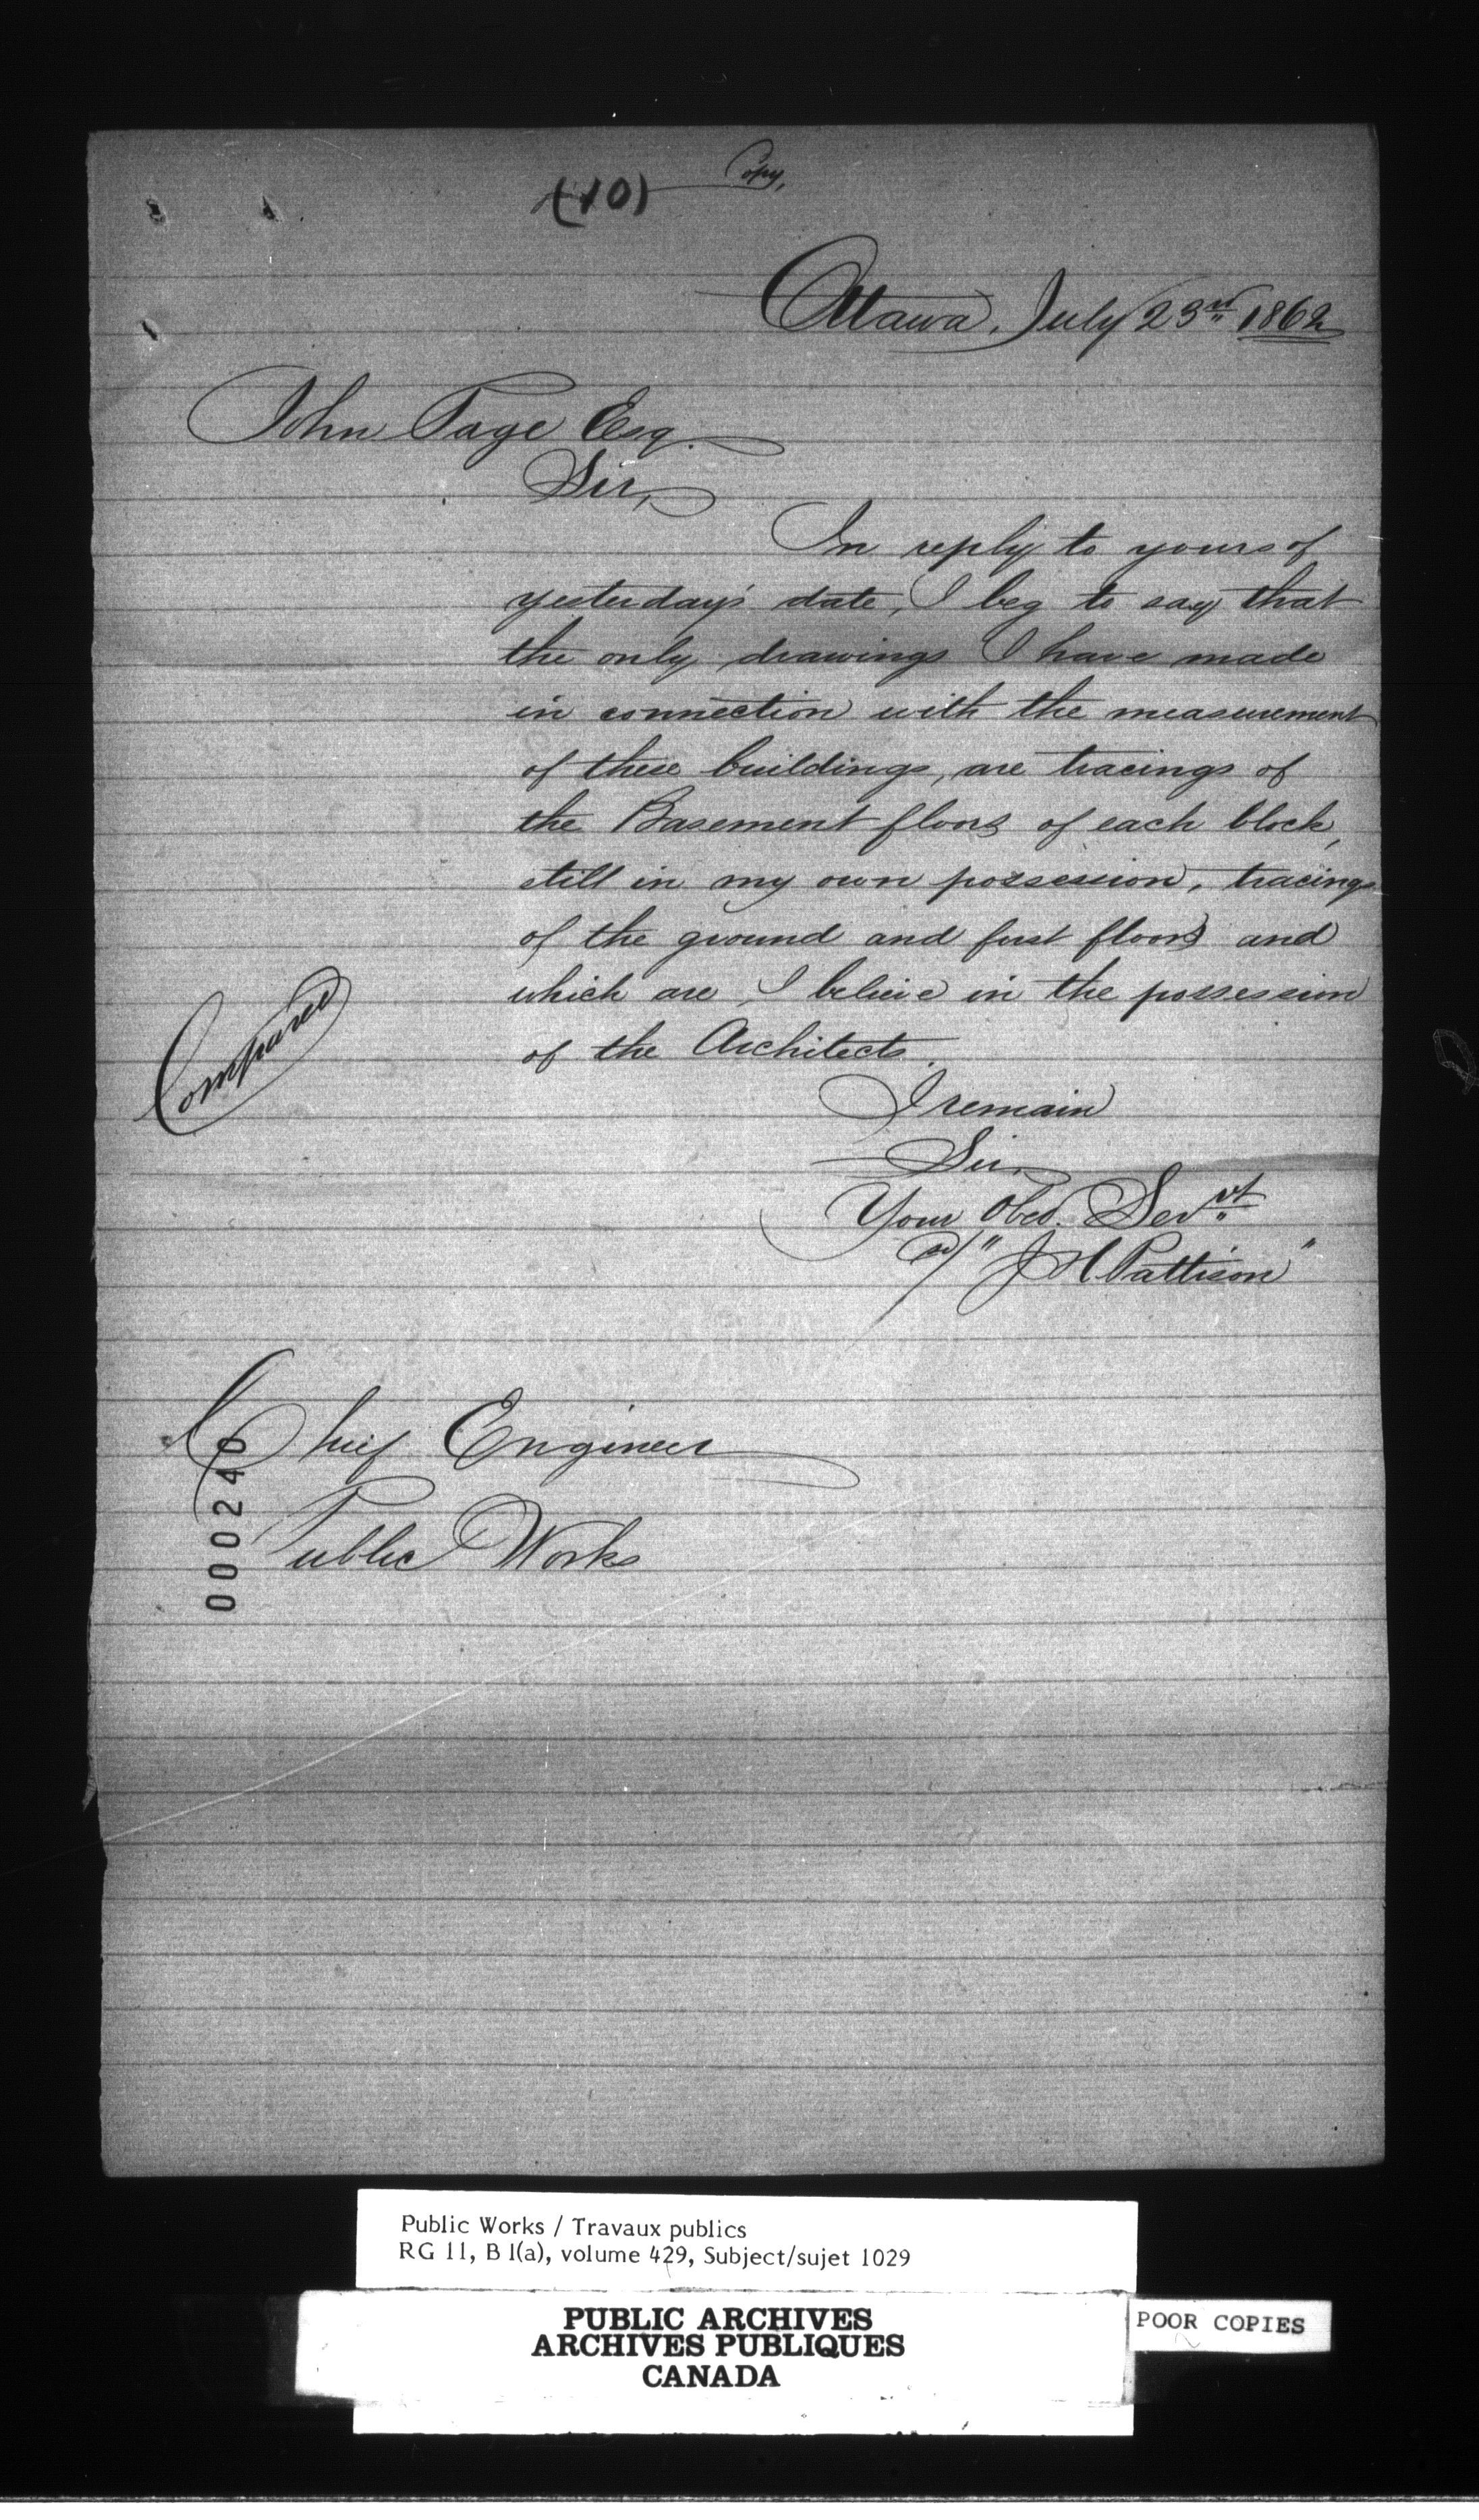 Copy,
(10)
Ottawa, July 23rd 1862
John Page Esq.
Sir,
In reply to yours of
yesterday's date, I beg to say that
the only drawings I have made
in connection with the measurement
of these buildings, are tracings of
the Basement floors of each block,
still in my own possession, tracings
of the ground and first floors and
which are, I believe in the possession
of the Architects.
Compared
I remain
Sir,
Your Obed. Servt
sd/ "J H Pattison"
Chief Engineer
Public Works
000240
Public Works / Travaux publics
RG 11, B 1(a), volume 429, Subject/sujet 1029
PUBLIC ARCHIVES
ARCHIVES PUBLIQUES
CANADA
POOR COPIES